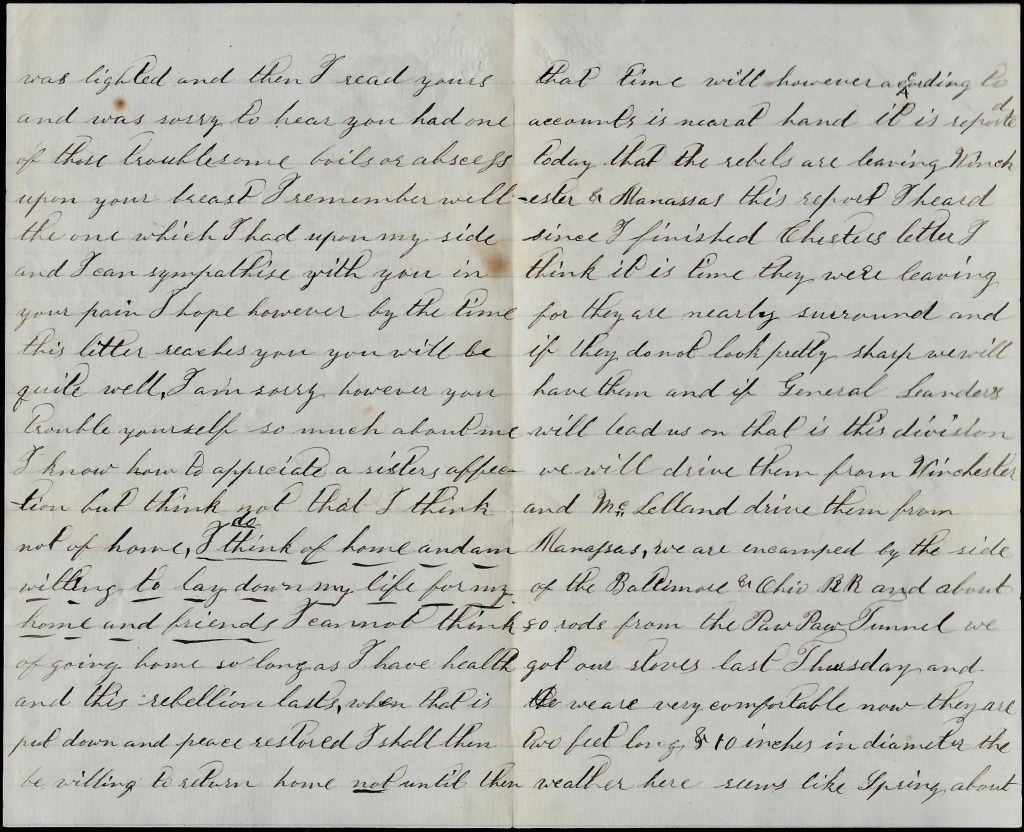 was lighted and then I read yours
and was sorry to hear you had one
of those troublesome boils or abscess
upon your breast I remember well
the one which I had upon my side
and I can sympathise with you in
your pain I hope however by the time
this letter reaches you you will be
quite well, I am sorry however you
trouble yourself so much about me
I know how to appreciate a sisters affec-
-tion but think not that I think
not of home, I do think of home and am
willing to lay down my life for my
home and friends I cannot think
of going home so long as I have health
and this rebellion lasts, when that is
put down and peace restored I shall then
be willing to return home not until then
that time will however according to
accounts is near at hand it is reported
today that the rebels are leaving Winch
-ester & Manassas this report I heard
since I finished Chesters letter I
think it is time they were leaving
for they are nearly surround and
if they do not look pretty sharp we will
have them and if General Landers
will lead us on that is this division
we will drive them from Winchester
and McLelland drive them from
Manassas, we are encamped by the side
of the Baltimore & Ohio RR and about
rods from the Paw Paw Tunnel we
got our stoves last Thursday and
we are very comfortable now they are
two feet long & 10 inches in diameter the
weather here seems like Spring about